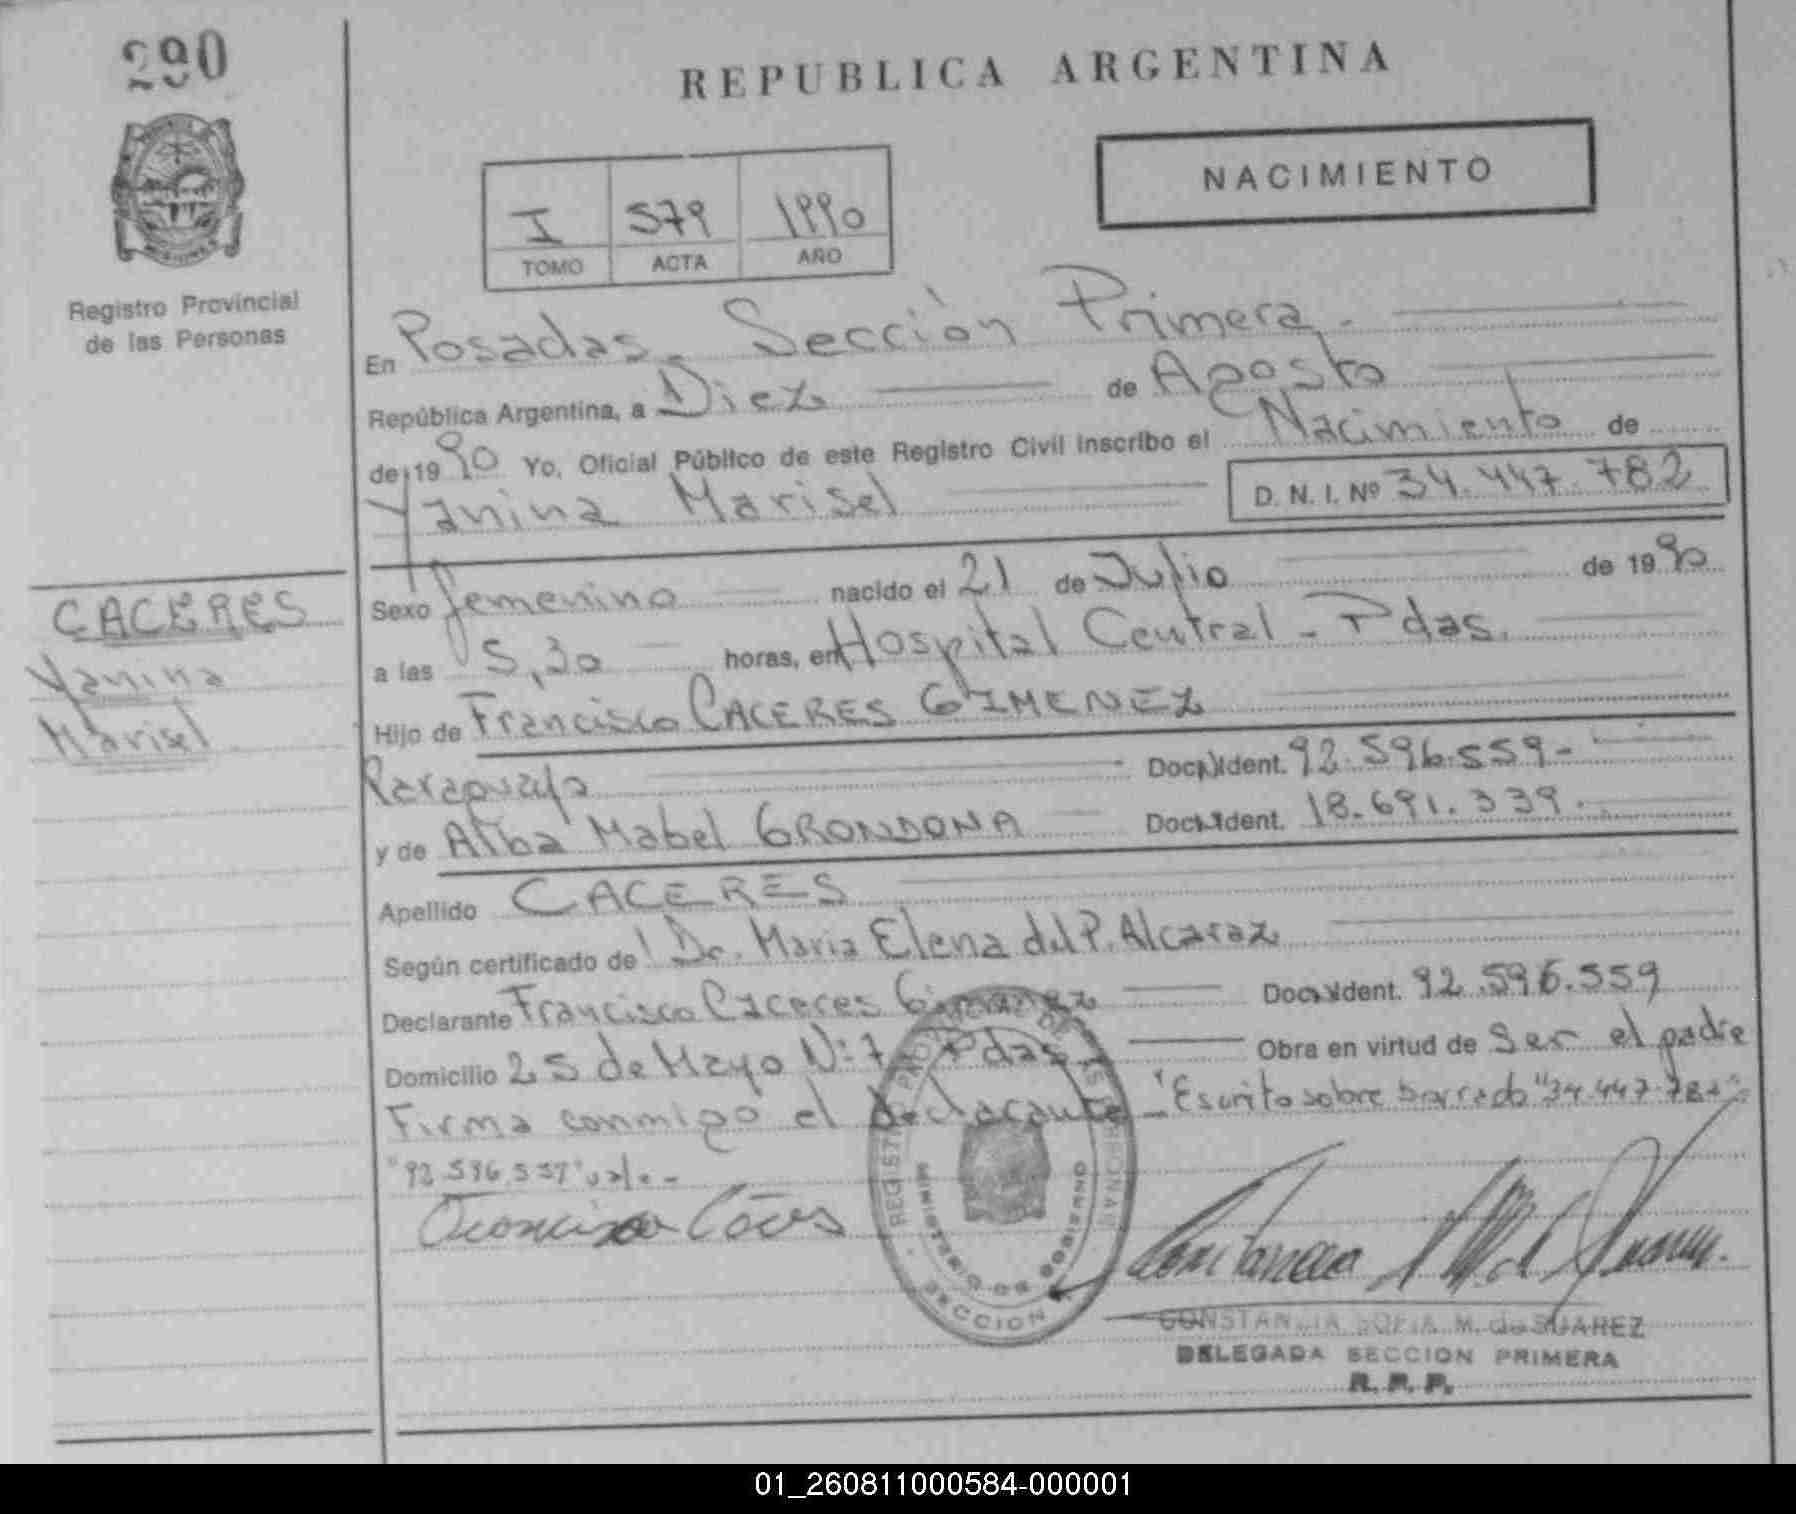 290
REPUBLICA ARGENTINA
NACIMIENTO
I 579 1990
TOMO ACTA AÑO
Registro Provincial
de las Personas
En Posadas. Sección Primera.
República Argentina, a Diez de Agosto
de 1990 Yo, Oficial Público de este Registro Civil inscribo el Nacimiento de
Yanina Marisel D. N. I. Nº 34.447.782
CACERES
Yanina
Marisel
Sexo femenino nacido el 21 de Julio de 1990
a las 5,30 horas, en Hospital Central - Pdas.
Hijo de Francisco CACERES GIMENEZ
Paraguayo Doc. Ident. 92.596.559-
y de Alba Mabel GRONDONA Doc. Ident. 18.691.339.
Apellido CACERES
Según certificado de Dr. Maria Elena del P. Alcaraz
Declarante Francisco Caceres Gimenez Doc. Ident. 92.596.559
Domicilio 25 de Mayo Nº 7 Pdas. Obra en virtud de Ser el padre
Firma conmigo el declarante - "Escrito sobre borrado "34.447.782"
"92.596.559" vale -
REGISTRO PROVINCIAL DE LAS PERSONAS
MINISTERIO DE GOBIERNO
SECCION
CONSTANCIA SOFIA M. de SUAREZ
DELEGADA SECCION PRIMERA
R. P. P.
01_260811000584-000001